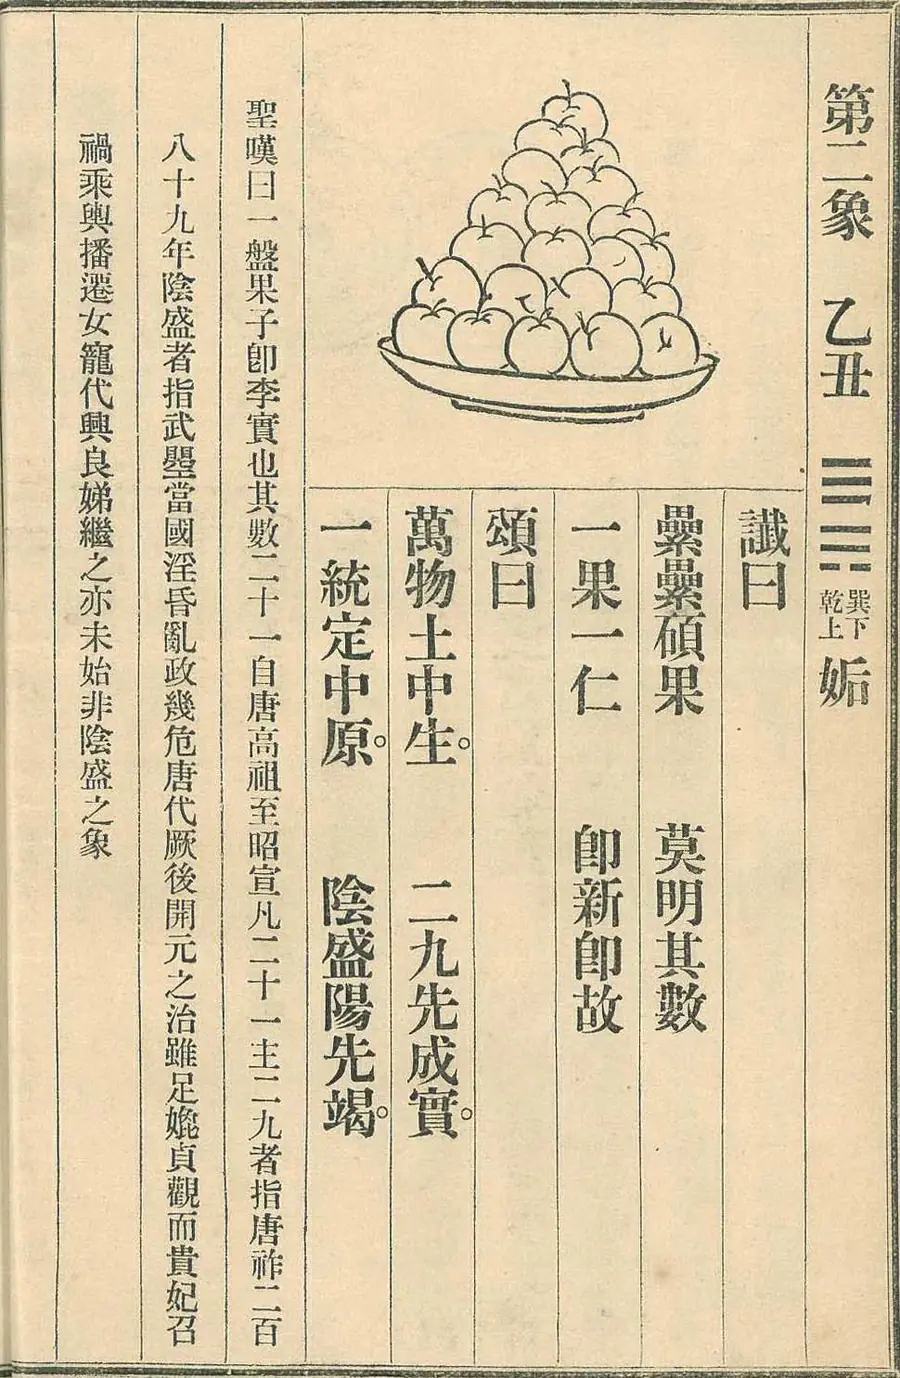 第二象 乙丑 巽下乾上 姤
讖曰
纍纍碩果 莫明其數
一果一仁 卽新卽故
頌曰
萬物土中生。 二九先成實。
一統定中原。 陰盛陽先竭。
聖嘆曰一盤果子卽李實也其數二十一自唐高祖至昭宣凡二十一主二九者指唐祚二百
八十九年陰盛者指武曌當國淫昏亂政幾危唐代厥後開元之治雖足媲貞觀而貴妃召
禍乘輿播遷女寵代興良娣繼之亦未始非陰盛之象